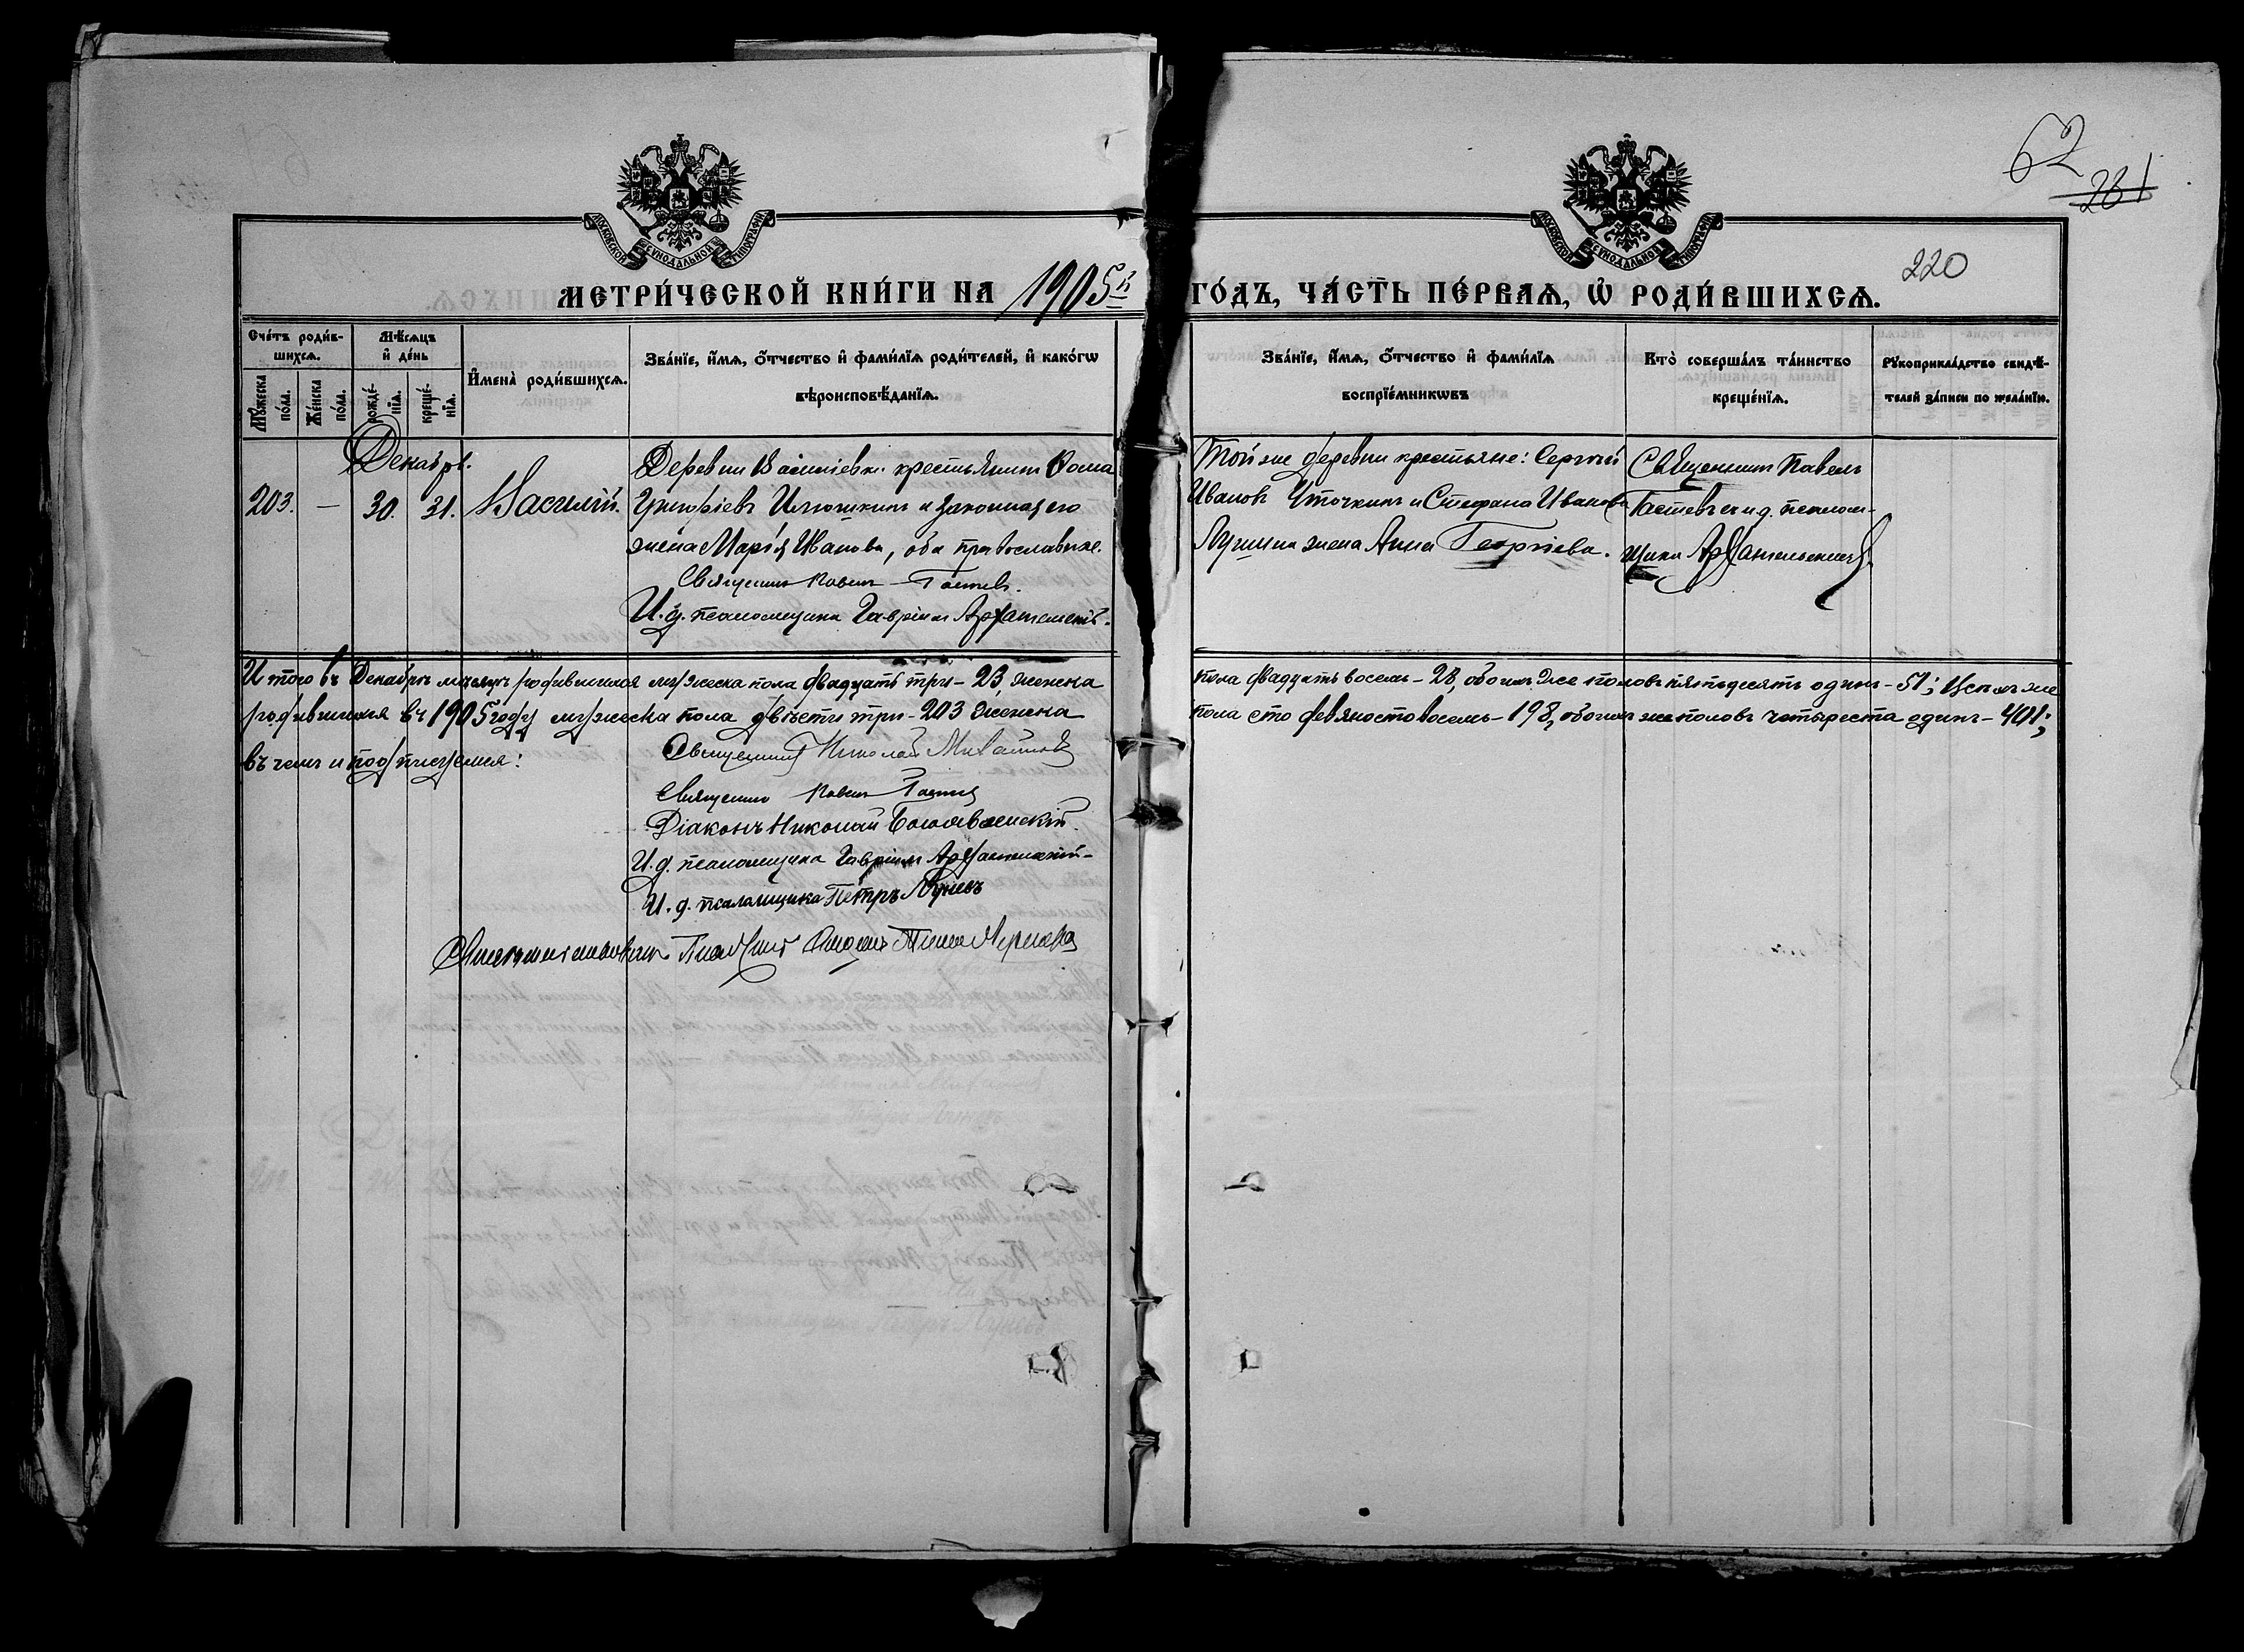 62
281
220
МОСКОВСКОЙ СѴНОДАЛЬНОЙ ТИПОГРАФІИ
МОСКОВСКОЙ СѴНОДАЛЬНОЙ ТИПОГРАФІИ
МЕТРИ́ЧЕСКОЙ КНИ́ГИ НА 1905й ГО́ДЪ, ЧА́СТЬ ПЕ́РВАѦ, Ѽ РОДИ́ВШИХСѦ.
Сче́тъ роди́в-
шихсѧ.
Мꙋ́жеска по́ла.
Же́нска по́ла.
Мѣ́сѧцъ
и҆ де́нь
рожде́-нїѧ.
креще́-нїѧ.
И҆мена̀ роди́вшихсѧ.
Зва́нїе, и҆́мѧ, ѻ҆́тчество и҆ фами́лїѧ роди́телей, и҆ како́гѡ
вѣроисповѣ́данїѧ.
Зва́нїе, и҆́мѧ, ѻ҆́тчество и҆ фами́лїѧ
воспрїе́мникѡвъ
Кто̀ соверша́лъ та́инство
креще́нїѧ.
Рꙋкоприкла́дство свидѣ́-
телей за́писи по жела́нїю.
Декабрь.
203. — 30. 31. Василій.
Деревни Васильевки крестьянинъ Ѳома
Григоріевъ Илюшкинъ и законная его
жена Марія Иванова, оба православные.
Священникъ Павелъ Гостевъ.
И. д. псаломщика Гавріилъ Архангельскій.
Той же деревни крестьяне: Сергій
Ивановъ Уточкинъ и Стефана Иванова
Лучина жена Анна Георгіева.
Священникъ Павелъ
Гостевъ съ и. д. псалом-
щика Архангельскимъ
Итого въ Декабрѣ мѣсяцѣ родившихся мужеска пола двадцать три - 23, женска пола двадцать восемь - 28, обоихъ же половъ пятьдесятъ одинъ - 51; Всѣхъ же
родившихся въ 1905 году мужеска пола двѣсти три - 203 женска пола сто девяносто восемь - 198, обоихъ же половъ четыреста одинъ - 401;
въ чемъ и подписуемся:
Священникъ Николай Михайловъ
Священникъ Павелъ Гостевъ
Діаконъ Николай Богоявленскій.
И. д. псаломщика Гавріилъ Архангельскій
И. д. псаломщика Петръ Луневъ